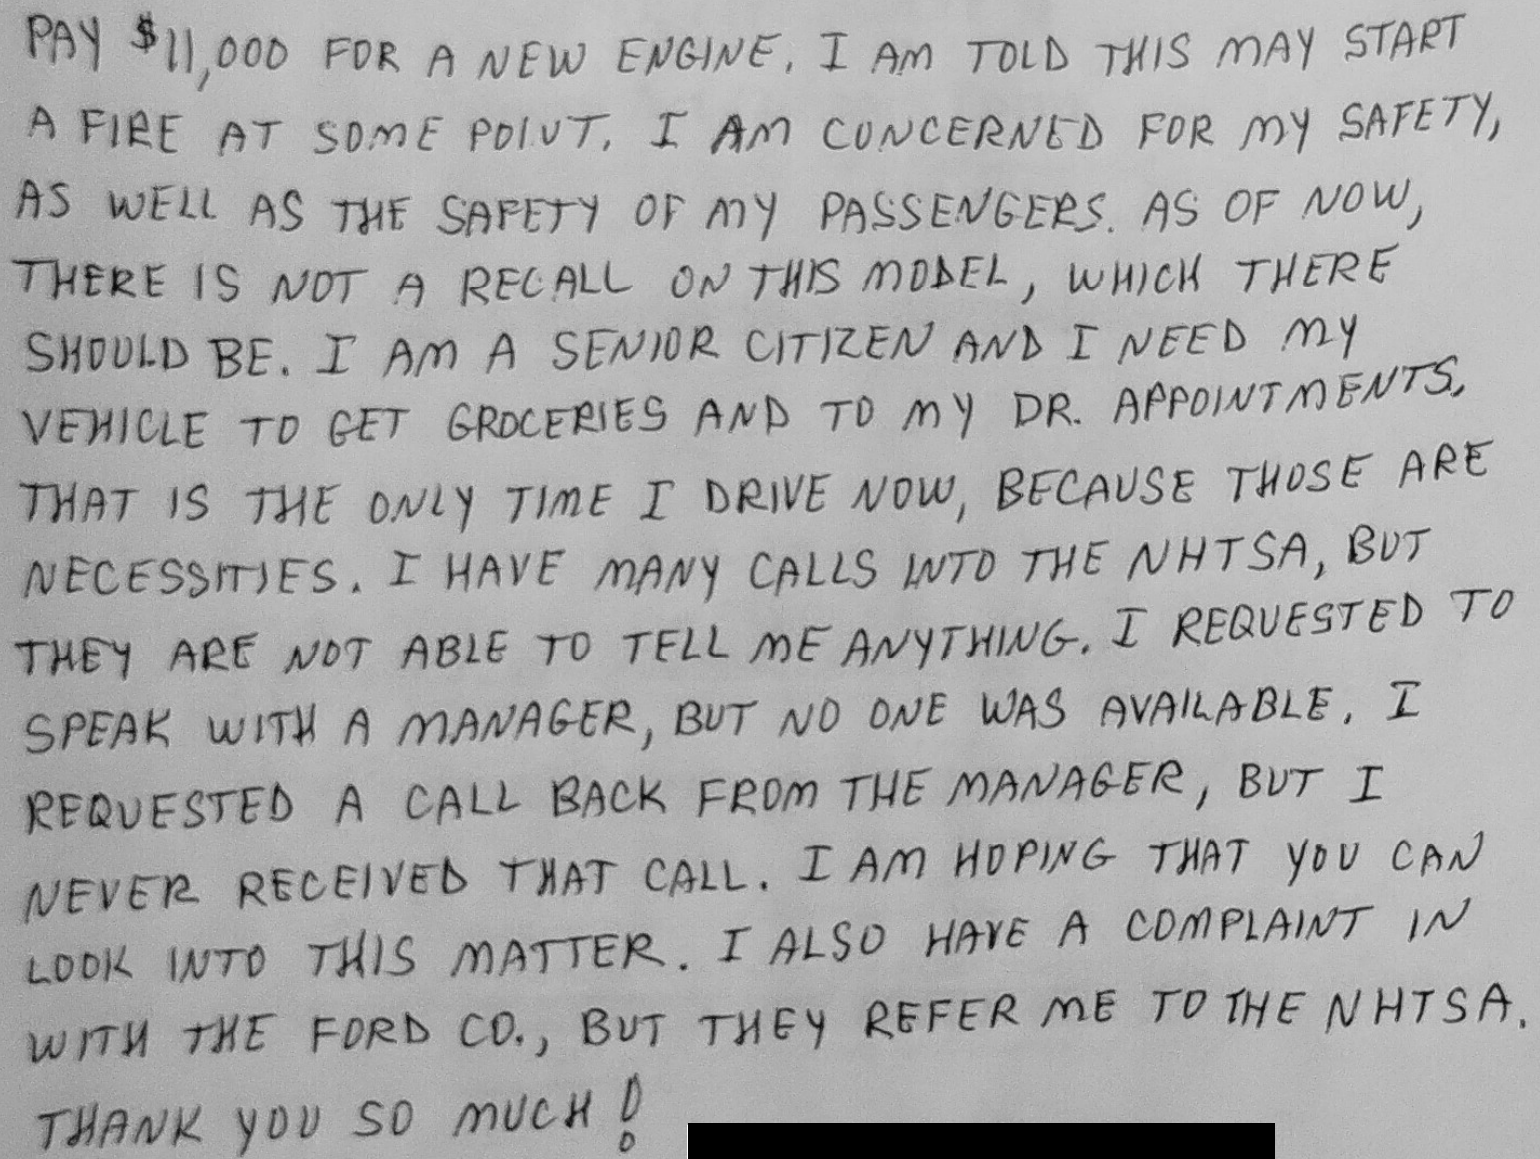 PAY $11,000 FOR A NEW ENGINE. I AM TOLD THIS MAY START
A FIRE AT SOME POINT. I AM CONCERNED FOR MY SAFETY,
AS WELL AS THE SAFETY OF MY PASSENGERS. AS OF NOW,
THERE IS NOT A RECALL ON THIS MODEL, WHICH THERE
SHOULD BE. I AM A SENIOR CITIZEN AND I NEED MY
VEHICLE TO GET GROCERIES AND TO MY DR. APPOINTMENTS.
THAT IS THE ONLY TIME I DRIVE NOW, BECAUSE THOSE ARE
NECESSITIES. I HAVE MANY CALLS INTO THE NHTSA, BUT
THEY ARE NOT ABLE TO TELL ME ANYTHING. I REQUESTED TO
SPEAK WITH A MANAGER, BUT NO ONE WAS AVAILABLE. I
REQUESTED A CALL BACK FROM THE MANAGER, BUT I
NEVER RECEIVED THAT CALL. I AM HOPING THAT YOU CAN
LOOK INTO THIS MATTER. I ALSO HAVE A COMPLAINT IN
WITH THE FORD CO., BUT THEY REFER ME TO THE NHTSA.
THANK YOU SO MUCH!